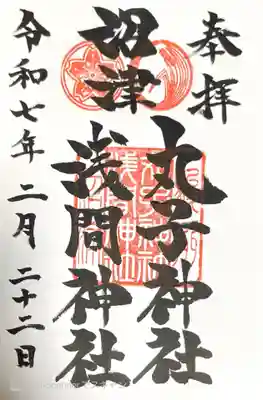 奉拝
沼津
丸子神社
浅間神社
令和七年二月二十二日